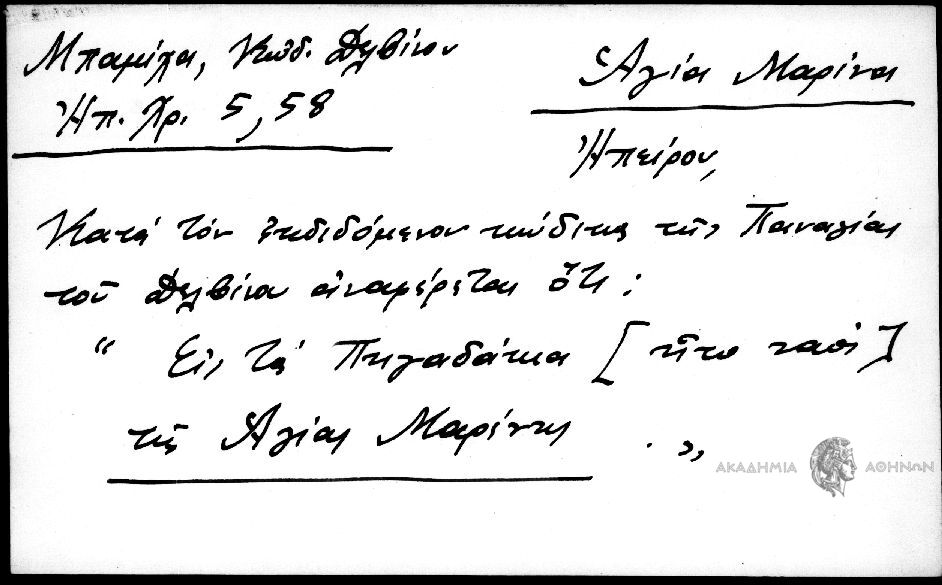 Μπαμίχα, Κώδ. Δελβίνου
Ἠπ. Χρ. 5, 58
Ἁγία Μαρίνα
Ἠπείρου,
Κατά τόν ἐκδιδόμενον κώδικα τῆς Παναγίας
τοῦ Δελβίνου ἀναφέρεται ὅτι :
“ Εἰς τά Πηγαδάκια [ ἦτο ναός ]
τῆς Ἁγίας Μαρίνης . „
ΑΚΑΔΗΜΙΑ ΑΘΗΝΩΝ